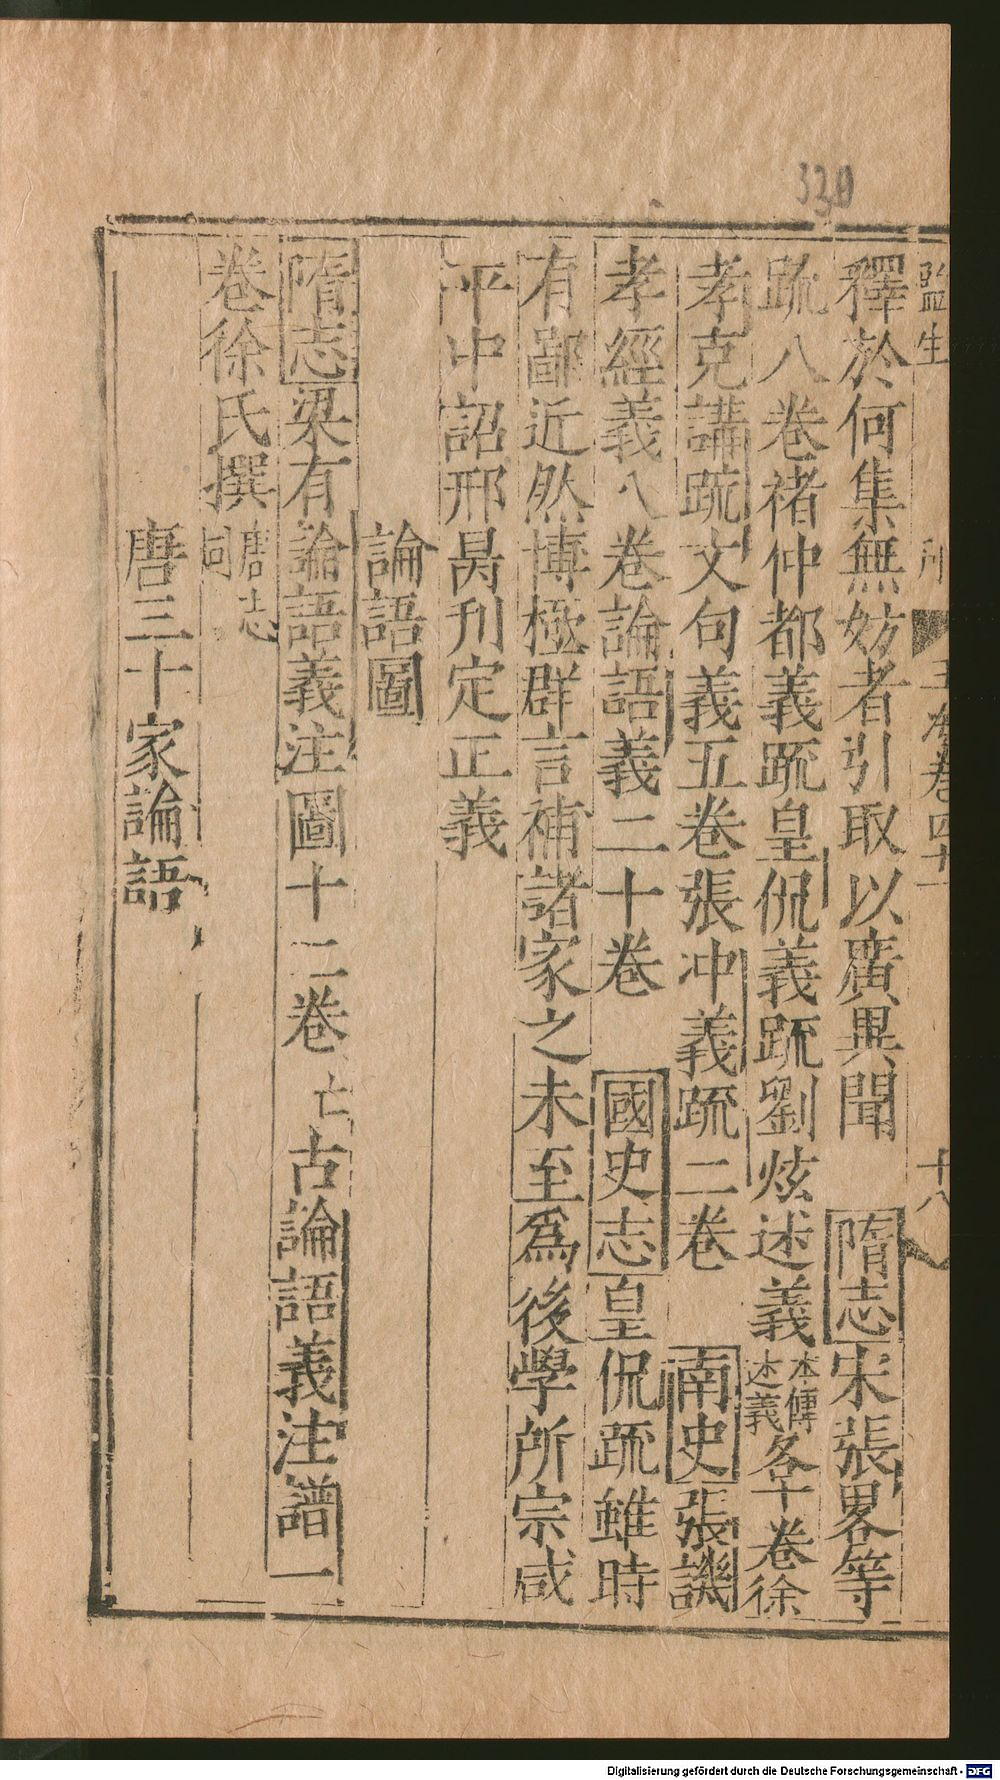 330
監生
玉海卷四十一
十八
釋於何集無妨者引取以廣異聞 隋志宋張畧等
疏八卷褚仲都義疏皇侃義疏劉炫述義本傳述義各十卷徐
孝克講疏文句義五卷張冲義疏二卷 南史張譏
孝經義八卷論語義二十卷 國史志皇侃疏雖時
有鄙近然博極群言補諸家之未至為後學所宗咸
平中詔邢昺刊定正義
論語圖
隋志梁有論語義注圖十二卷亡古論語義注譜一
卷徐氏撰唐志同
唐三十家論語
Digitalisierung gefördert durch die Deutsche Forschungsgemeinschaft - DFG